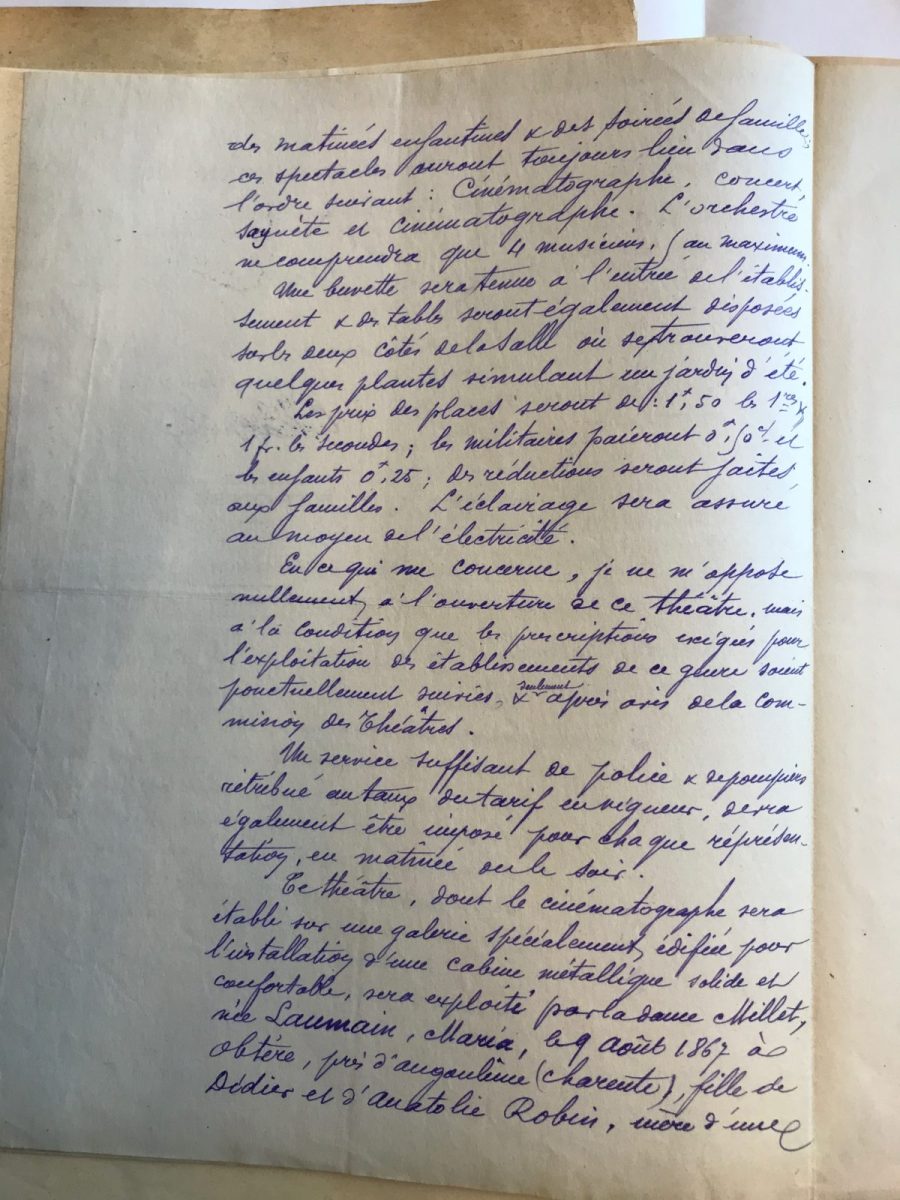 des matinées enfantines & des soirées de familles
ces spectacles auront toujours lieu dans
l'ordre suivant : Cinématographe, concert,
saynète et cinématographe. L'orchestre
ne comprendra que 4 musiciens, (au maximum.
Une buvette sera tenue à l'entrée de l'établis-
sement & des tables seront également disposées
sur les deux côtés de la salle où se trouveront
quelques plantes simulant un jardin d'été.
Les prix des places seront de : 1f,50 les 1res &
1 fr. les secondes ; les militaires paieront 0f,50c et
les enfants 0f,25 ; des réductions seront faites
aux familles. L'éclairage sera assuré
au moyen de l'électricité.
En ce qui me concerne, je ne m'oppose
nullement à l'ouverture de ce théâtre, mais
à la condition que les prescriptions exigées pour
l'exploitation des établissements de ce genre soient
ponctuellement suivies, & seulement après avis de la Com-
mission des Théâtres.
Un service suffisant de police & de pompiers
rétribué au taux du tarif en vigueur, devra
également être imposé pour chaque réprésen-
tation, en matinée ou le soir.
Ce théâtre, dont le cinématographe sera
établi sur une galerie spécialement édifiée pour
l'installation d'une cabine métallique solide et
confortable, sera exploité par la dame Millet,
née Laumain, Maria, le 9 Août 1867 à
Obtère, près d'angoulême (Charente), fille de
Didier et d'Anatolie Robin, mère d'une